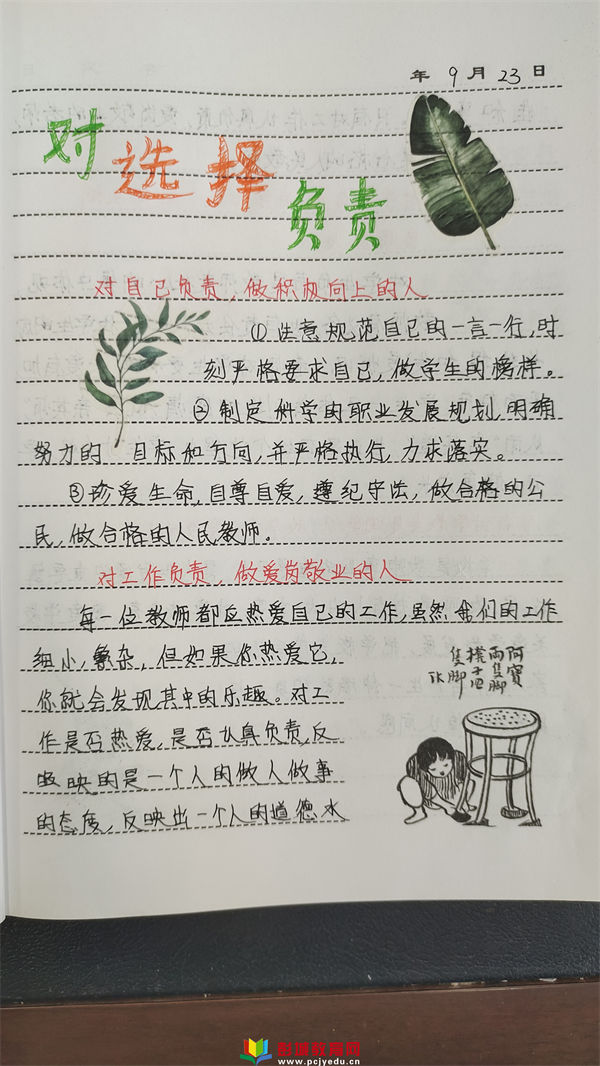 年 9 月 23 日
对选择负责
对自己负责，做积极向上的人
①注意规范自己的一言一行，时
刻严格要求自己，做学生的榜样。
②制定科学的职业发展规划，明确
努力的 目标和方向，并严格执行，力求落实。
③珍爱生命，自尊自爱，遵纪守法，做合格的公
民，做合格的人民教师。
对工作负责，做爱岗敬业的人
每一位教师都应热爱自己的工作，虽然我们的工作
细小，繁杂，但如果你热爱它，
你就会发现其中的乐趣。对工
作是否热爱，是否认真负责，反
映的是一个人的做人做事
的态度，反映出一个人的道德水
阿寶
兩隻脚
櫈子四
隻脚
彭城教育网
www.pcjyedu.cn